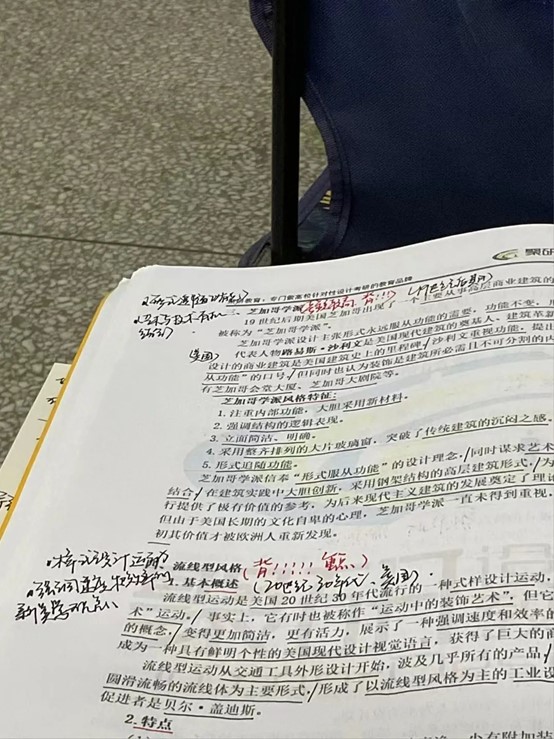 聚研
教育，专门做高校针对性设计考研的教育品牌
三、芝加哥学派
19 世纪后期美国芝加哥出现了一个主要从事高层商业建筑的
被称为“芝加哥学派”。
芝加哥学派设计主张形式永远服从功能的需要，功能不变，
美国
代表人物路易斯·沙利文是美国现代建筑的奠基人、建筑革新
设计的商业建筑是美国建筑史上的里程碑。沙利文重视功能，提出
从功能”的口号，但同时也认为装饰是建筑所必需且不可分割的内
有芝加哥会堂大厦、芝加哥大剧院等。
芝加哥学派风格特征：
1. 注重内部功能，大胆采用新材料。
2. 强调结构的逻辑表现。
3. 立面简洁、明确。
4. 采用整齐排列的大片玻璃窗，突破了传统建筑的沉闷之感。
5. 形式追随功能。
芝加哥学派信奉“形式服从功能”的设计理念，同时谋求艺术
结合，在建筑实践中大胆创新，采用钢架结构的高层建筑形式，为
行提供了极有价值的参考，为后来现代主义建筑的发展奠定了理论
但由于美国长期的文化自卑的心理，芝加哥学派一直未得到重视，
初其价值才被欧洲人重新发现。
流线型风格（背！！！！！重点）
1. 基本概述（20世纪30年代、美国）
流线型运动是美国 20 世纪 30 年代流行的一种式样设计运动，
术”运动，事实上，它有时也被称作“运动中的装饰艺术”，但它
的概念，变得更加简洁，更有活力，展示了一种强调速度和效率的
成为一种具有鲜明个性的美国现代设计视觉语言，获得了巨大的商
流线型运动从交通工具外形设计开始，波及几乎所有的产品，
圆滑流畅的流线体为主要形式，形成了以流线型风格为主的工业设
促进者是贝尔·盖迪斯。
2. 特点